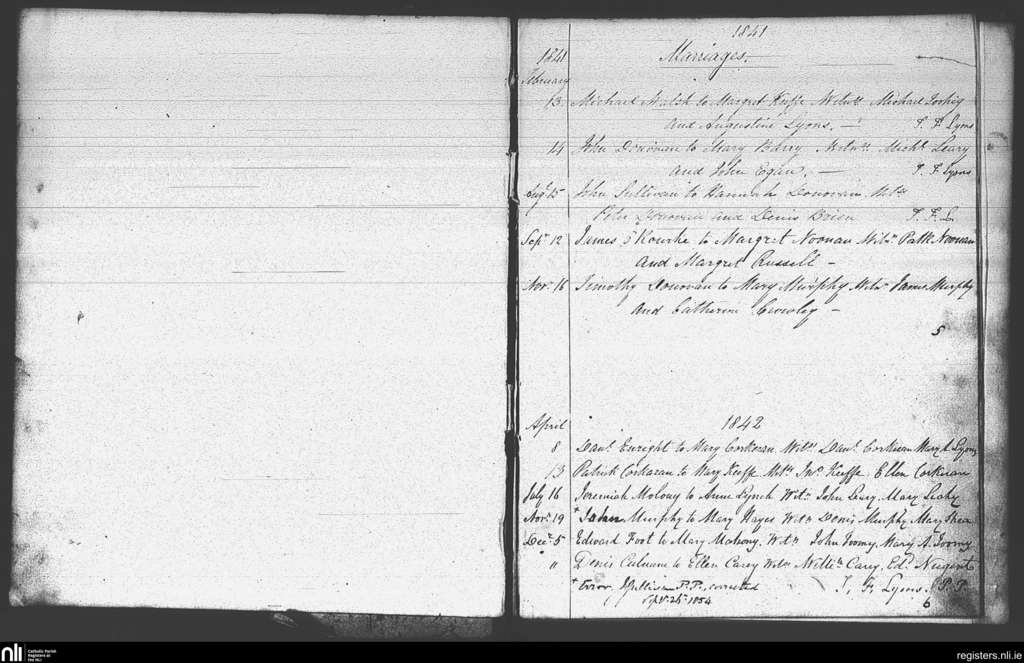 1841
1841
Marriages.
February
13 Michael Walsh to Margret Keeffe Witnss Michael
and Augustine Lyons. — T. F. Lyons
14 John Donovan to Mary Barry Witnss Michl Leary
and John Egan. — T. F. Lyons
Augt 15 John Sullivan to Hannah Donovan Wits
Peter Donovan and Denis Brien T. F. L.
Sept 12 James O'Rourke to Margret Noonan Wits Patk Noonan
and Margret Russell —
Novr 16 Timothy Donovan to Mary Murphy Wits James Murphy
and Catherine Crowley —
5
April 1842
8 Danl Enright to Mary Corkeran Wits Danl Corkeran Mary A Lyons
13 Patrick Corkaran to Mary Keeffe Wits Jno Keeffe, Ellen Corkeran
July 16 Jeremiah Molony to Anne Lynch Wits John Leary, Mary Leahy
Novr 19 + John Murphy to Mary Hayes Wits Denis Murphy, Mary Shea
Decr 5 Edward Foot to Mary Mahony, Wits John Toomy, Mary A. Toomy
" Denis Culnane to Ellen Carey Wits Willm Carey, Ed. Nugent
+ Error, P.P., corrected T. F. Lyons. P.P.
Sept 26th 1854
6
nli
Catholic Parish
Registers at
the NLI
registers.nli.ie